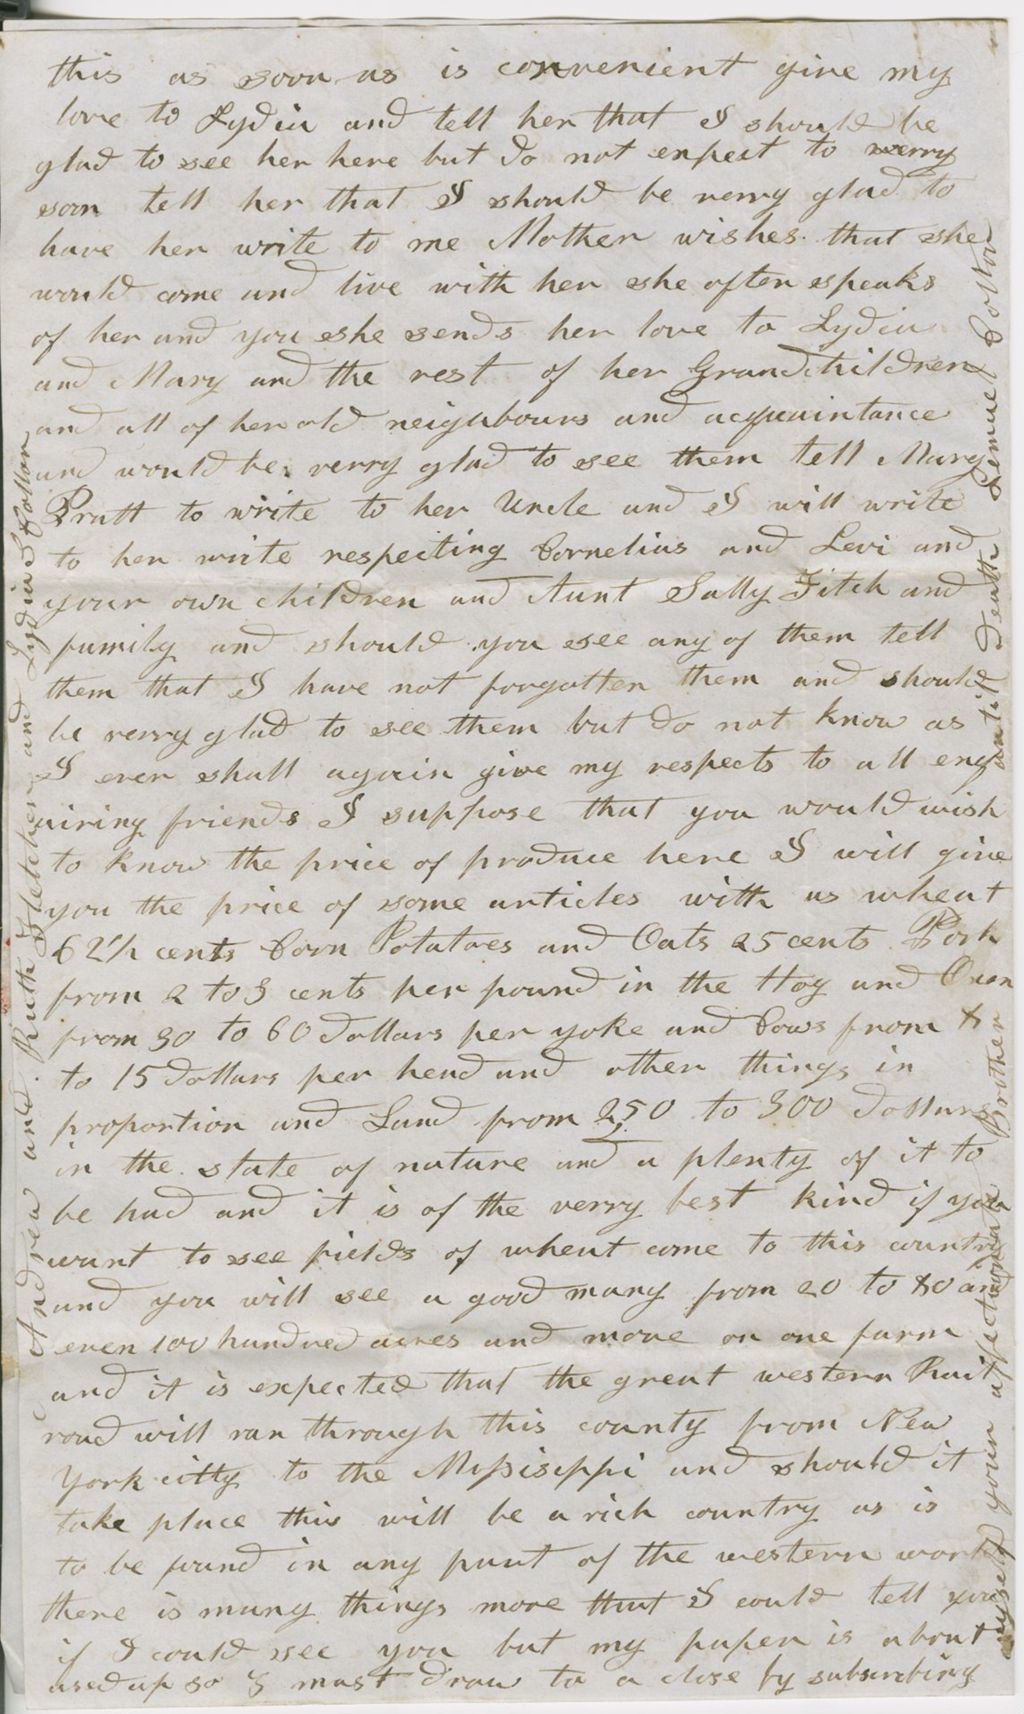 this as soon as is convenient give my
love to Lydia and tell her that I should be
glad to see her here but do not expect to verry
soon tell her that I should be verry glad to
have her write to me Mother wishes that she
would come and live with her she often speaks
of her and you she sends her love to Lydia
and Mary and the rest of her Grandchildren
and all of her old neighbours and acquaintance
and would be verry glad to see them tell Mary
Pratt to write to her Uncle and I will write
to her write respecting Cornelius and Levi and
your own children and Aunt Sally Fitch and
family and should you see any of them tell
them that I have not forgotten them and should
be verry glad to see them but do not know as
I ever shall again give my respects to all enq
uiring friends I suppose that you would wish
to know the price of produce here I will give
you the price of some articles with us wheat
62 1/2 cents Corn Potatoes and Oats 25 cents Pork
from 2 to 3 cents per pound in the Hog and Oxen
from 30 to 60 dollars per yoke and Cows from 8
to 15 dollars per head and other things in
proportion and Land from 2,50 to 300 dollars
in the state of nature and a plenty of it to
be had and it is of the verry best kind if you
want to see fields of wheat come to this country
and you will see a good many from 20 to 80 and
even 100 hundred acres and more on one farm
and it is expected that the great western Rail
road will ran through this county from New
York citty to the Missisippi and should it
take place this will be a rich country as is
to be found in any part of the western world
there is many things more that I could tell you
if I could see you but my paper is about
used up so I must draw to a close by subscribing
myself your affectionate Brother untill death Lemuel Colton
Andrew and Ruth Fletcher and Lydia Colton